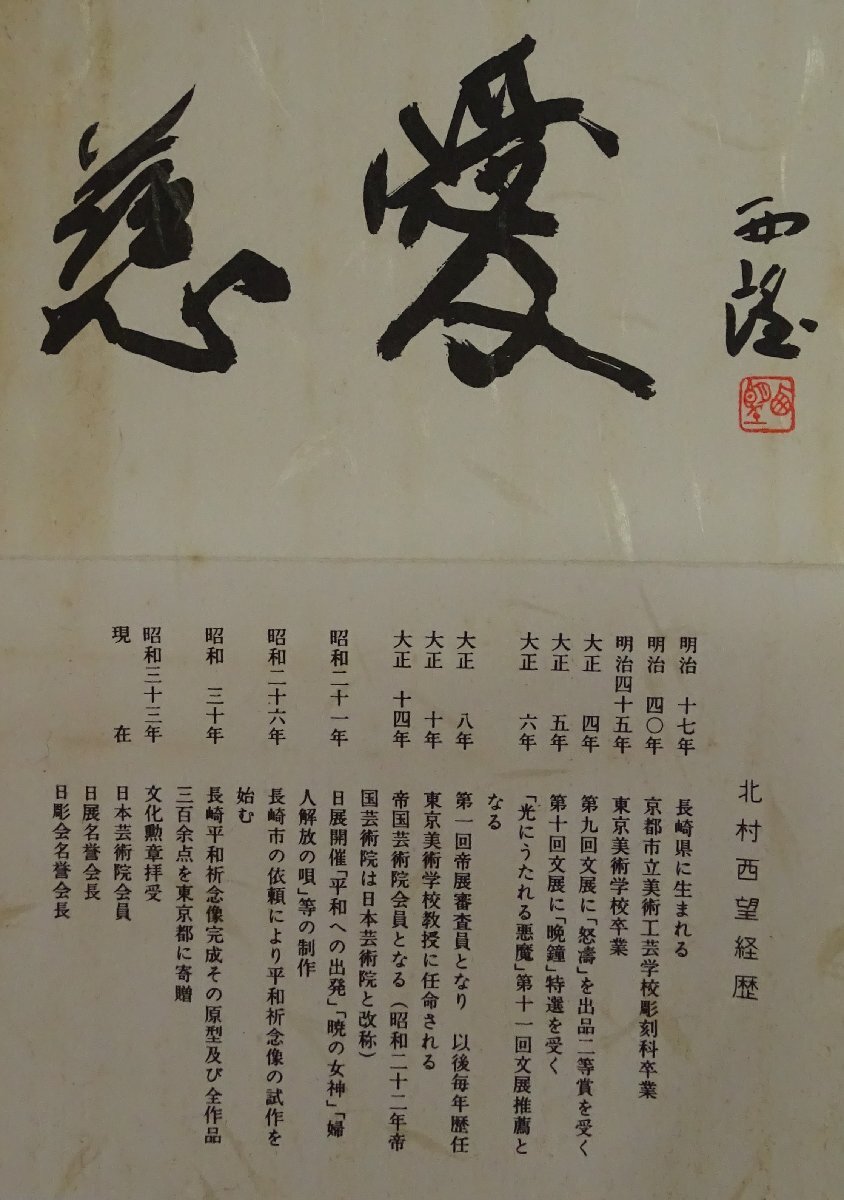 慈愛
西望
西望
北村西望経歴
明治 十七年 長崎県に生まれる
明治 四〇年 京都市立美術工芸学校彫刻科卒業
明治四十五年 東京美術学校卒業
大正 四年 第九回文展に「怒濤」を出品二等賞を受く
大正 五年 第十回文展に「晩鐘」特選を受く
大正 六年 「光にうたれる悪魔」第十一回文展推薦と
なる
大正 八年 第一回帝展審査員となり 以後毎年歴任
大正 十年 東京美術学校教授に任命される
大正 十四年 帝国芸術院会員となる（昭和二十二年帝
国芸術院は日本芸術院と改称）
昭和二十一年 日展開催「平和への出発」「暁の女神」「婦
人解放の唄」等の制作
昭和二十六年 長崎市の依頼により平和祈念像の試作を
始む
昭和 三十年 長崎平和祈念像完成その原型及び全作品
三百余点を東京都に寄贈
昭和三十三年 文化勲章拝受
現 在 日本芸術院会員
日展名誉会長
日彫会名誉会長